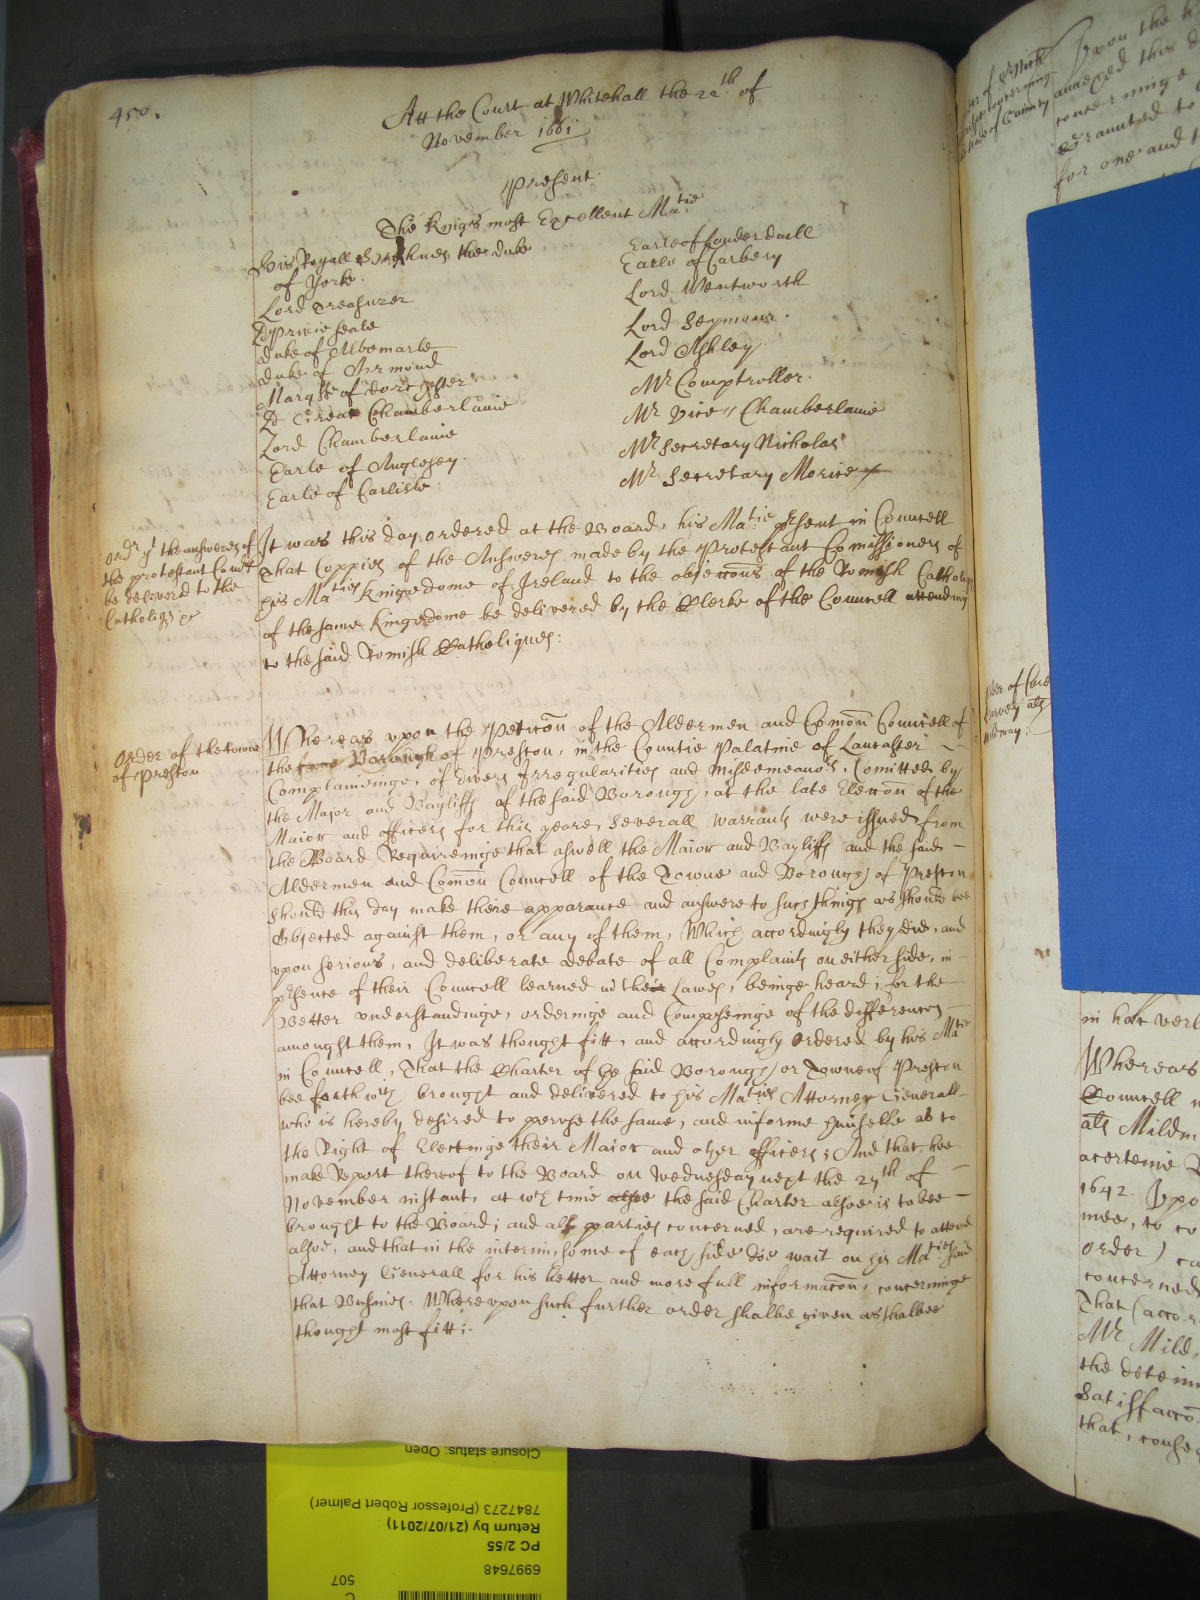 450.
Att the Court at Whitehall the 22th. of
November 1661
Present
The Kings most Excellent Matie
His Royall Highnes the duke
of Yorke.
Lord Treasurer
Ld Privie Seale
Duke of Albemarle
Duke of Ormond
Marqss of dorchester
Ld Great Chamberlaine
Lord Chamberlaine
Earle of Anglesey.
Earle of Carlisle
Earle of Lauderdaill
Earle of Carbery
Lord Wentworth
Lord Seymour.
Lord Ashley
Mr Comptroller.
Mr Vice Chamberlaine
Mr Secretary Nicholas
Mr Secretary Morice
Ordr yt the answeres of
the protestant Comrs
be delivered to the
Catholiqs
It was this day ordered at the Board, his Matie present in Councell
That Coppies of the Answeres made by the Protestant Comissioners of
his Maties Kingdome of Ireland to the objeccons of the Romish Catholiqs
of the same Kingdome be delivered by the Clerke of the Councell attending
to the said Romish Catholiques:
Order of the towne
of Preston
Whereas upon the Peticon of the Aldermen and Comon Councell of
the Borough of Preston, in the Countie Palatine of Lancaster
Complaineinge, of divers Irregularities and misdemeanors, Comitted by
the Major and Bayliffs of the said Borough, at the late Eleccon of the
Maior and officers for this yeare, Severall warrants were issued from
the Board Requireinge that aswell the Maior and Bayliffs and the said
Aldermen and Comon Councell of the Towne and Borough of Preston
should this day make there apparance and answere to such things as should bee
Objected against them, or any of them, Which accordingly they did, and
upon serious, and deliberate debate of all Complaints on either side, in
presence of their Councell learned in their Lawes, beinge heard; for the
Better understandinge, orderinge and Composeinge of the differences
amongst them, It was thought fitt, and accordingly Ordered by his Matie
in Councell, That the Charter of the said Borough or Towne of Preston
bee forthwith brought and delivered to his Maties Attorney Generall
who is hereby desired to peruse the same, and informe himselfe as to
the Right of Electinge their Maior and other officers; And that hee
make Report thereof to the Board on Wednesday next the 27th of
November instant, at wch time the said Charter alsoe is to bee
brought to the Board; and all parties concerned, are required to attend
alsoe, and that in the interim, some of each side doe wait on his Maties said
Attorney Generall for his better and more full informacon, concerninge
that Busines. Whereupon such further order shalbe given as shalbee
thought most fitt;.
Upon the
annexed this
concerninge
Graunted to
for one and
in hac verb
Whereas
Councell
als Mildm
acerteine
1642. Upo
mee, to co
order) ca
concerned
That (accor
Mr Mild
the determ
Satisfacco
that, conse
Closure status: Open
7847273 (Professor Robert Palmer)
Return by (21/07/2011)
PC 2/55
6997648
507
C